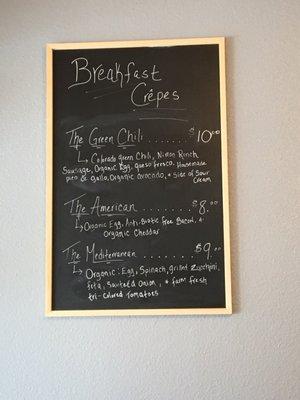 Breakfast
Crêpes
The Green Chili ....... $10.00
Colorado Green Chili, Niman Ranch
Sausage, Organic Egg, Queso Fresco, Homemade
pico de gallo, Organic avocado, + Side of Sour
Cream
The American ......... $8.00
Organic Egg, Anti-Biotic Free Bacon, +
Organic Cheddar
The Mediterranean ....... $9.00
Organic: Egg, Spinach, grilled Zucchini,
feta, Sautéed Onion, + farm fresh
tri-colored tomatoes